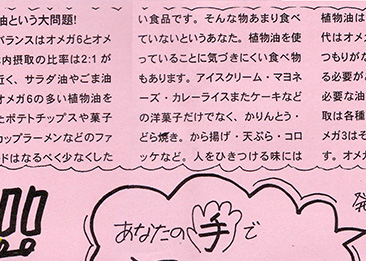 油という大問題!
バランスはオメガ6とオメ
内摂取の比率は2:1が
近く、サラダ油やごま油
オメガ6の多い植物油を
たポテトチップスや菓子
カップラーメンなどのファ
ドはなるべく少なくした
い食品です。そんな物あまり食べ
ていないというあなた。植物油を使
っていることに気づきにくい食べ物
もあります。アイスクリーム・マヨネ
ーズ・カレーライスまたケーキなど
の洋菓子だけでなく、かりんとう・
どら焼き。から揚げ・天ぷら・コロ
ッケなど。人をひきつける味には
植物油は
代はオメガ
つもりがな
る必要があ
必要な油
取は各種
メガ3はそ
す。オメガ
あなたの手で